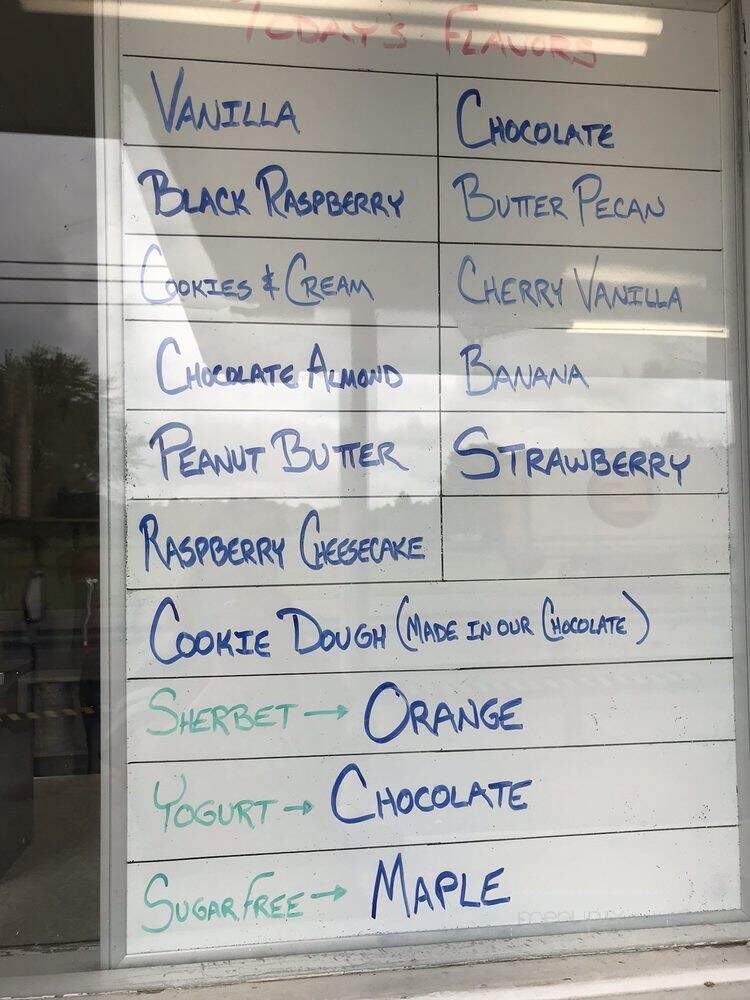 TODAY'S FLAVORS
VANILLA
CHOCOLATE
BLACK RASPBERRY
BUTTER PECAN
COOKIES & CREAM
CHERRY VANILLA
CHOCOLATE ALMOND
BANANA
PEANUT BUTTER
STRAWBERRY
RASPBERRY CHEESECAKE
COOKIE DOUGH (MADE IN OUR CHOCOLATE)
SHERBET → ORANGE
YOGURT → CHOCOLATE
SUGAR FREE → MAPLE